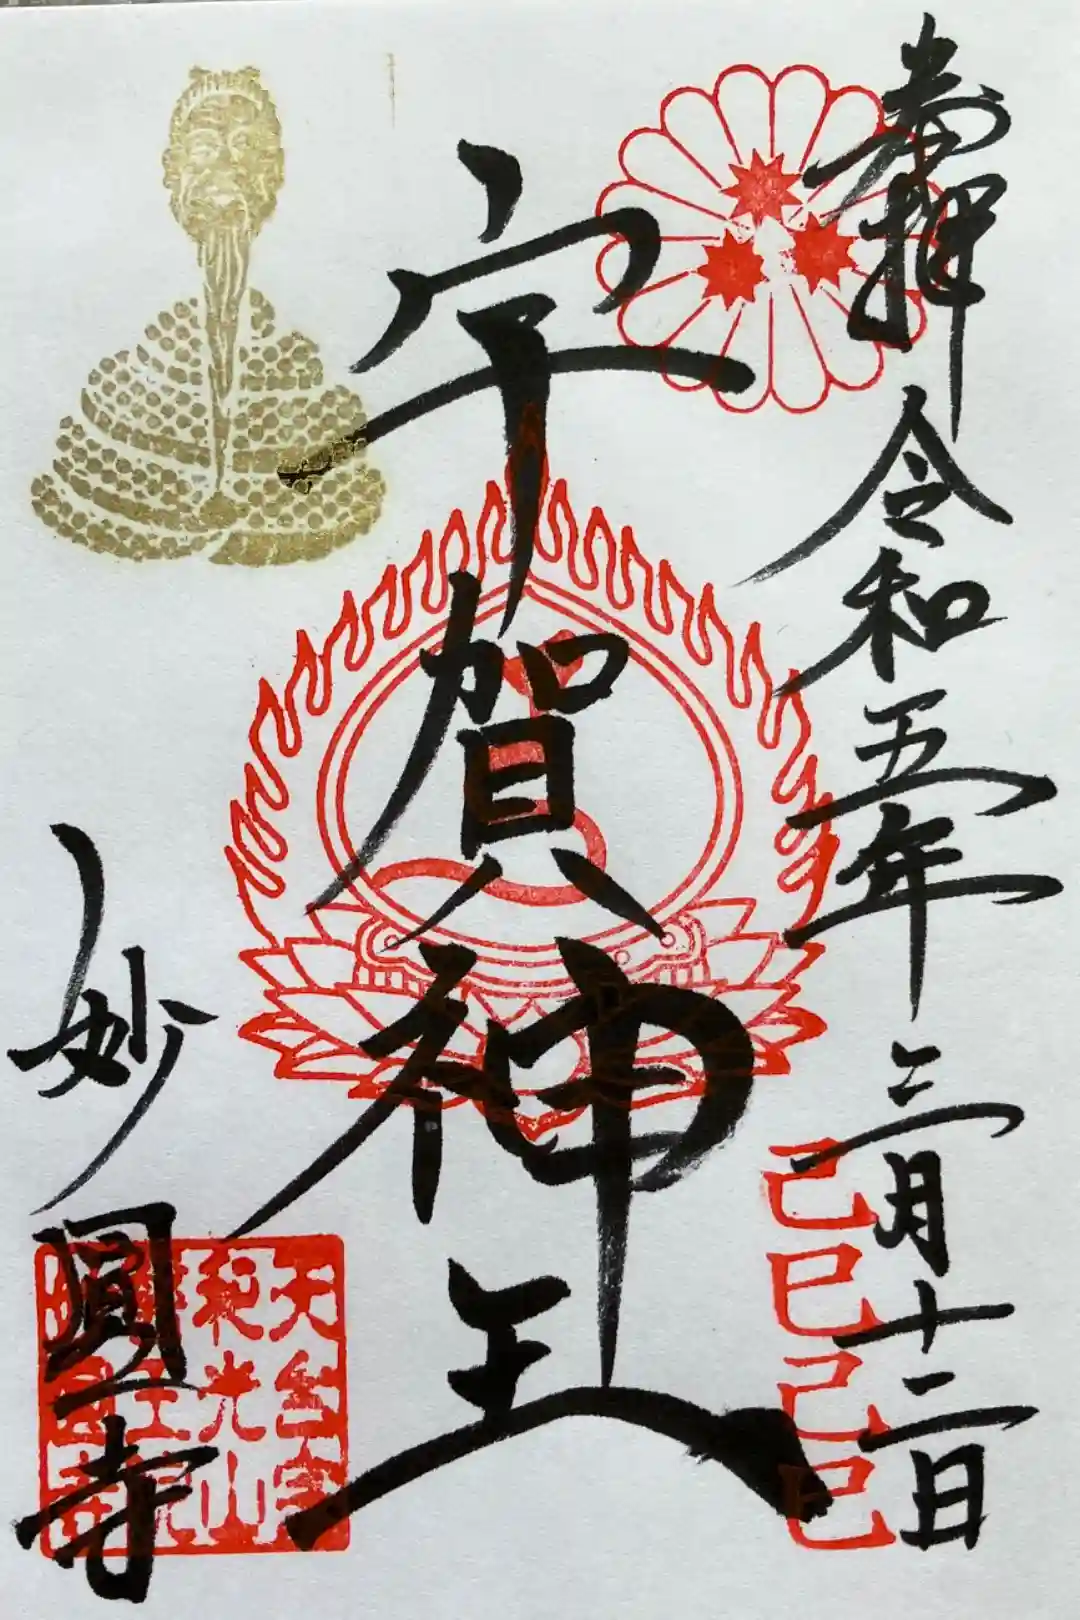 奉拝 令和五年 三月十二日
己巳己巳
宇賀神王
妙圓寺
天台宗
和光山